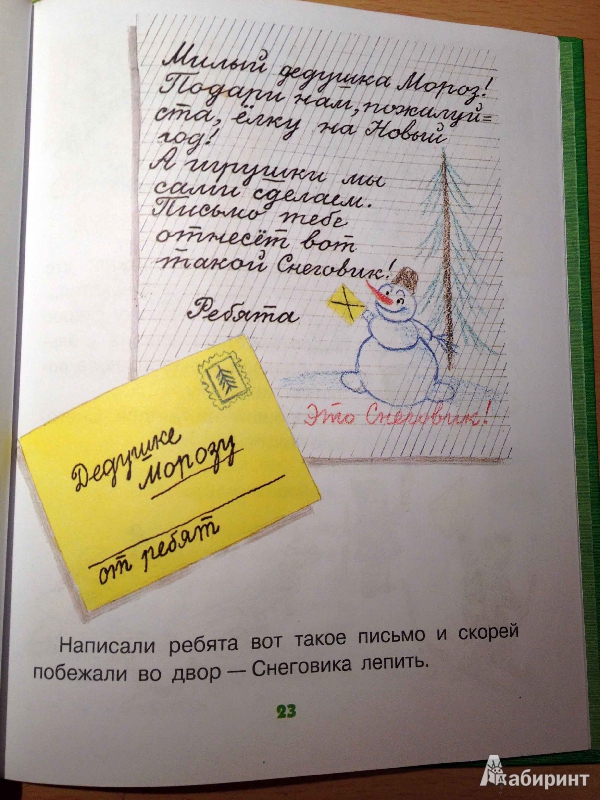 Милый дедушка Мороз!
Подари нам, пожалуй=
ста, ёлку на Новый
год!
А игрушки мы
сами сделаем.
Письмо тебе
отнесёт вот
такой Снеговик!
Ребята
Это Снеговик!
Дедушке
Морозу
от ребят
Написали ребята вот такое письмо и скорей
побежали во двор — Снеговика лепить.
23
Лабиринт